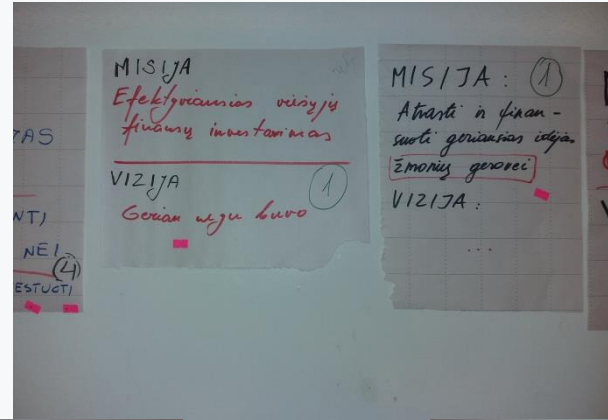 ZAS
NTI
NEI
4
ESTUOTI
MISIJA
Efektyviausias viešųjų
finansų investavimas
VIZIJA
1
Geriau negu buvo
MISIJA: 1
Atrasti ir finan-
suoti geriausias idėjas
žmonių gerovei
VIZIJA:
...